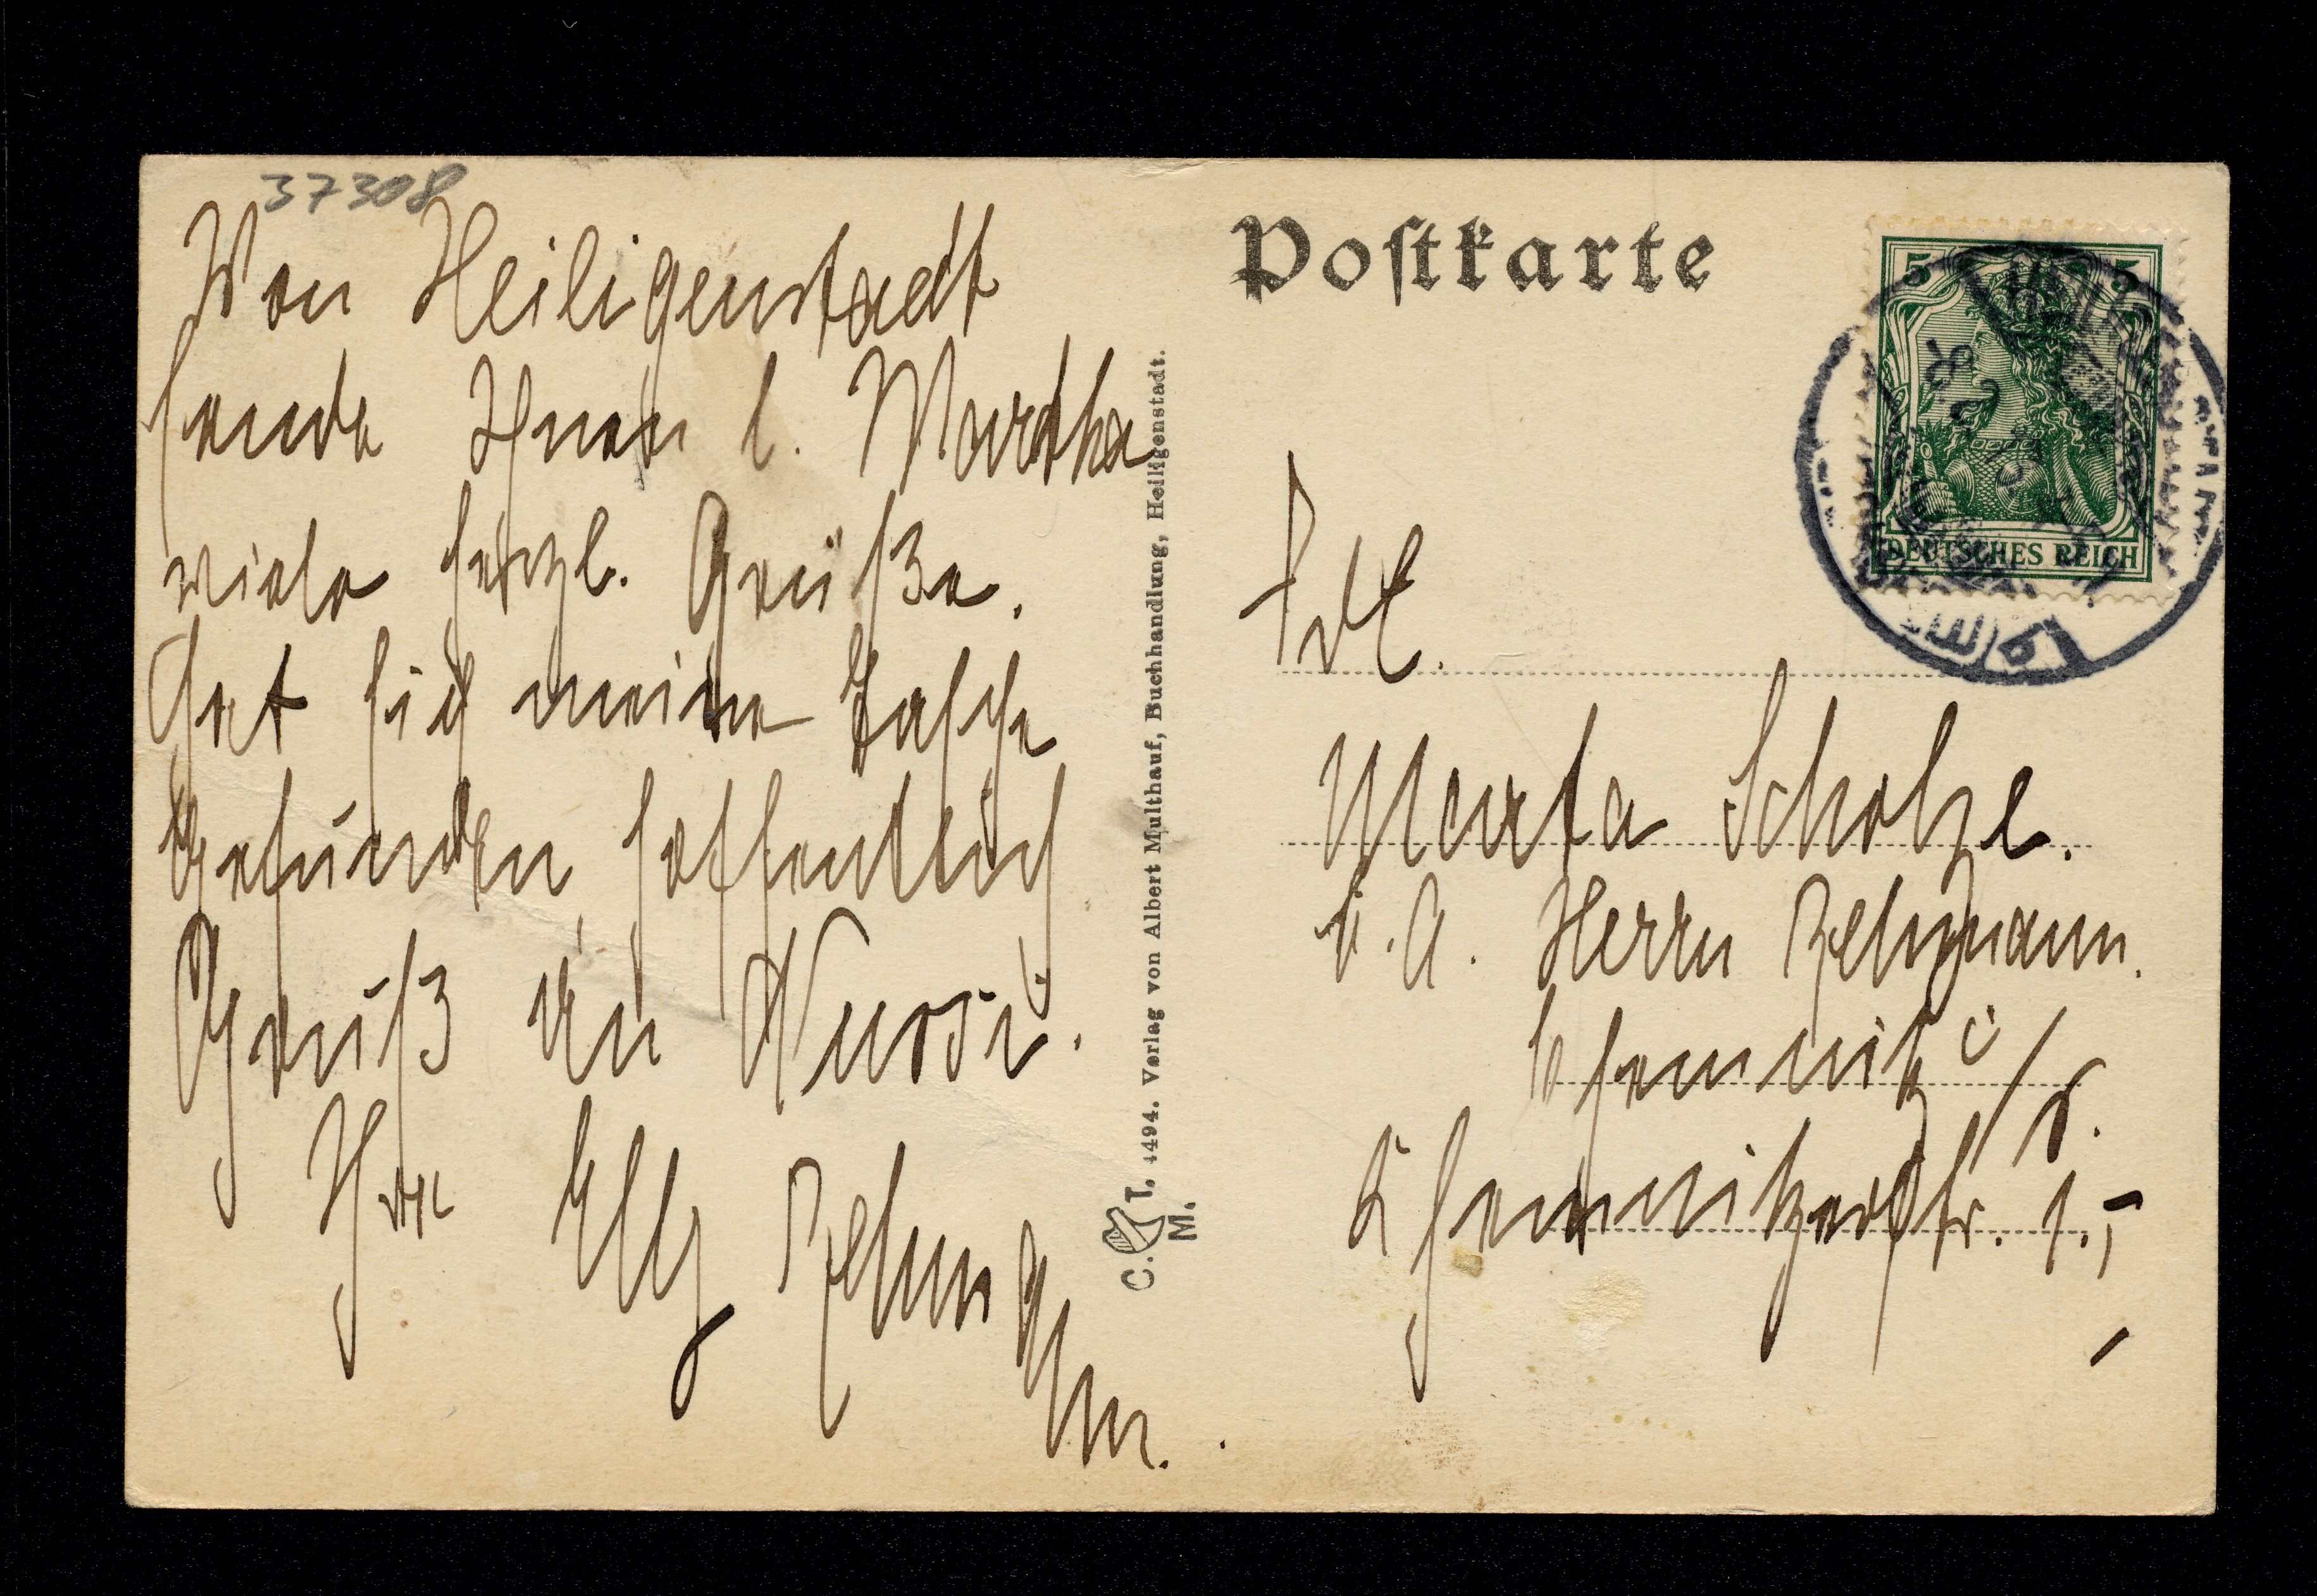 37308
Von Heiligenstadt
sende Ihnen l. Martha
viele herzl. Grüße.
Hat sich meine Tasche
gefunden, hoffentlich
Gruß an Kurti.
Ihre Elly
C. T. M. 1494. Verlag von Albert Multhauf, Buchhandlung, Heiligenstadt.
Postkarte
5 5
DEUTSCHES REICH
Frl.
Marta Scholze.
b. A. Herrn
Chemnitz i/S.
Chemnitzerstr. 1.